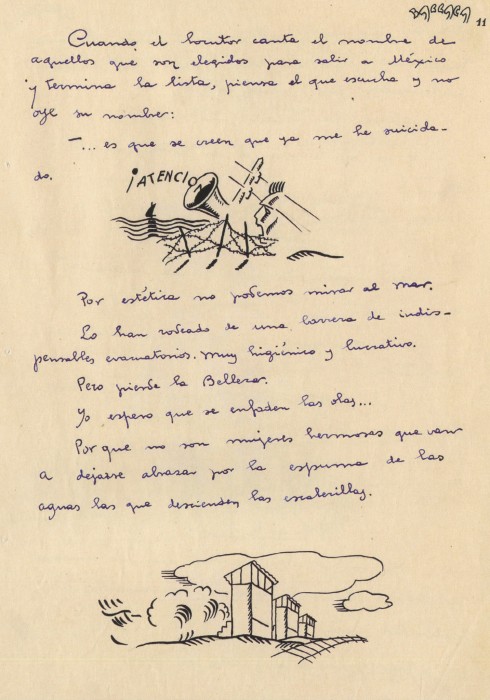 11
Cuando el locutor canta el nombre de
aquellos que son elegidos para salir a México
y termina la lista, piensa el que escucha y no
oye su nombre:
—... es que se creen que ya me he suicida-
do.
¡ATENCIO
Por estética no podemos mirar al mar.
Lo han rodeado de una barrera de indis-
pensables evacuatorios. Muy higiénico y lucrativo.
Pero pierde la Belleza.
Yo espero que se enfaden las olas...
Porque no son mujeres hermosas que van
a dejarse abrazar por la espuma de las
aguas las que descienden las escalerillas.